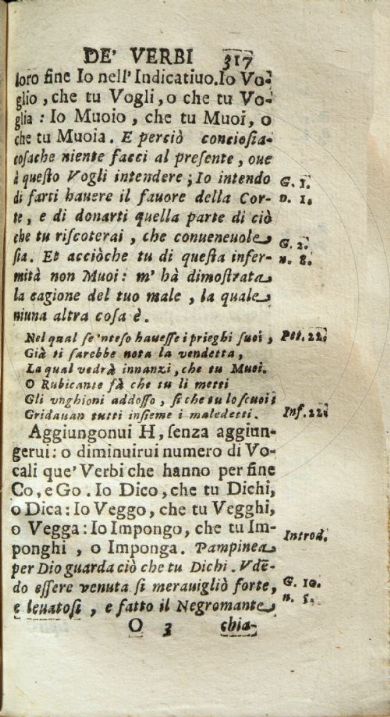 DE' VERBI 317
loro fine Io nell'Indicatiuo. Io Vo-
glio, che tu Vogli, o che tu Vo-
glia: Io Muoio, che tu Muoi, o
che tu Muoia. E perciò conciosia-
cosache niente facci al presente, oue
è questo Vogli intendere; Io intendo G. 1.
di farti hauere il fauore della Cor- n. 1.
te, e di donarti quella parte di ciò
che tu riscoterai, che conueneuole G. 2.
sia. Et acciòche tu di questa infer- n. 8.
mità non Muoi: m'hà dimostrata
la cagione del tuo male, la quale
niuna altra cosa è.
Nel qual se'nteso hauesse i prieghi suoi, Pet. 22.
Già ti sarebbe nota la vendetta,
La qual vedrà innanzi, che tu Muoi.
O Rubicante fà che tu li metti
Gli vnghioni addosso, sì che tu lo scuoi;
Gridauan tutti insieme i maledetti. Inf. 22.
Aggiungonui H, senza aggiun-
gerui: o diminuirui numero di Vo-
cali que' Verbi che hanno per fine
Co, e Go. Io Dico, che tu Dichi,
o Dica: Io Veggo, che tu Vegghi,
o Vegga: Io Impongo, che tu Im-
ponghi, o Imponga. Pampinea Introd.
per Dio guarda ciò che tu Dichi. Vde-
do essere venuta si merauigliò forte, G. 10.
e leuatosi, e fatto il Negromante n. 5.
O 3 chia-